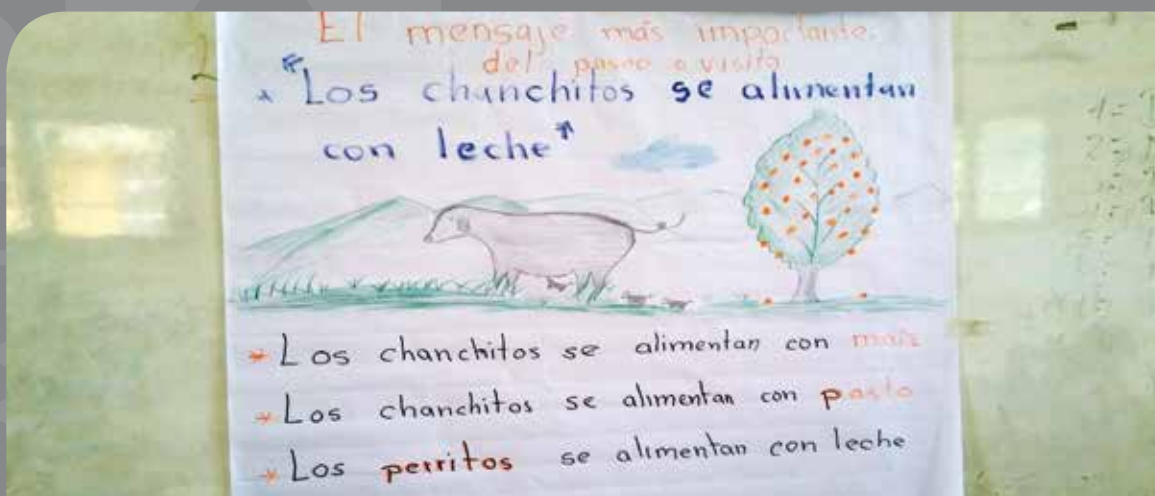 El mensaje más importante
del paseo o visita
"Los chanchitos se alimentan
con leche"
* Los chanchitos se alimentan con maíz
* Los chanchitos se alimentan con pasto
* Los perritos se alimentan con leche